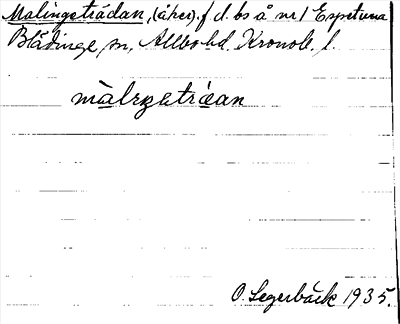 Malingeträdan, (åker). f. d. bs å nr 1 Espetuna
Blädinge sn, Allbo hd. Kronob. l.
màlıŋetrǽan
O. Segerbäck 1935.